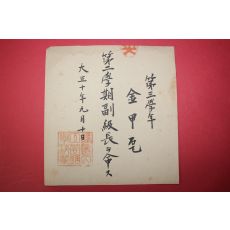 第三學年
金甲乭
第三學期副級長ヲ命ス
大正十年九月十日